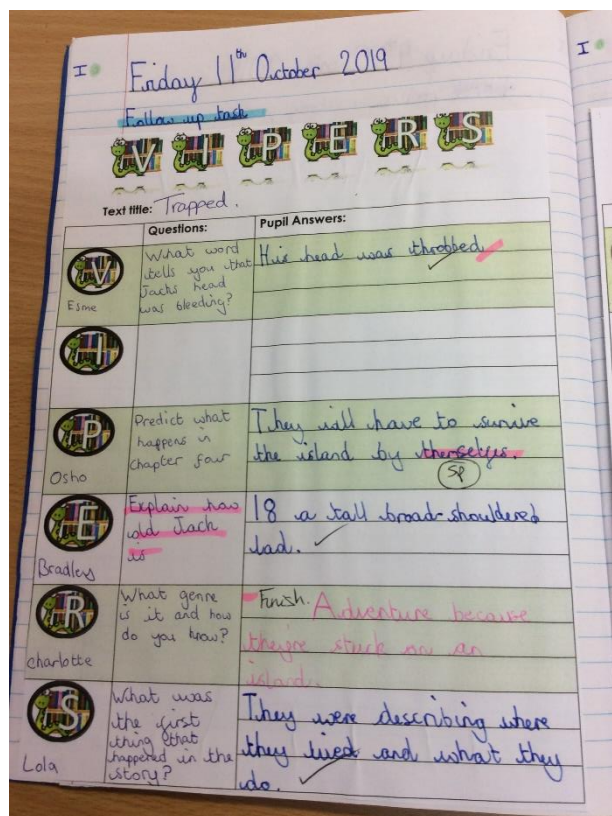 I
Friday 11th October 2019
Follow up task
V I P E R S
Text title: Trapped.
Questions:
Pupil Answers:
V
Esme
What word
tells you that
Jacks head
was bleeding?
His head was throbbed.
I
P
Osho
Predict what
happens in
Chapter four
They will have to survive
the island by themselfs.
SP
E
Bradley
Explain how
old Jack
is
18 a tall broad-shouldered
lad.
R
charlotte
What genre
is it and how
do you know?
Finish. Adventure because
they're stuck on an
island.
S
Lola
What was
the first
thing that
happened in the
story?
They were describing where
they lived and what they
do.
I